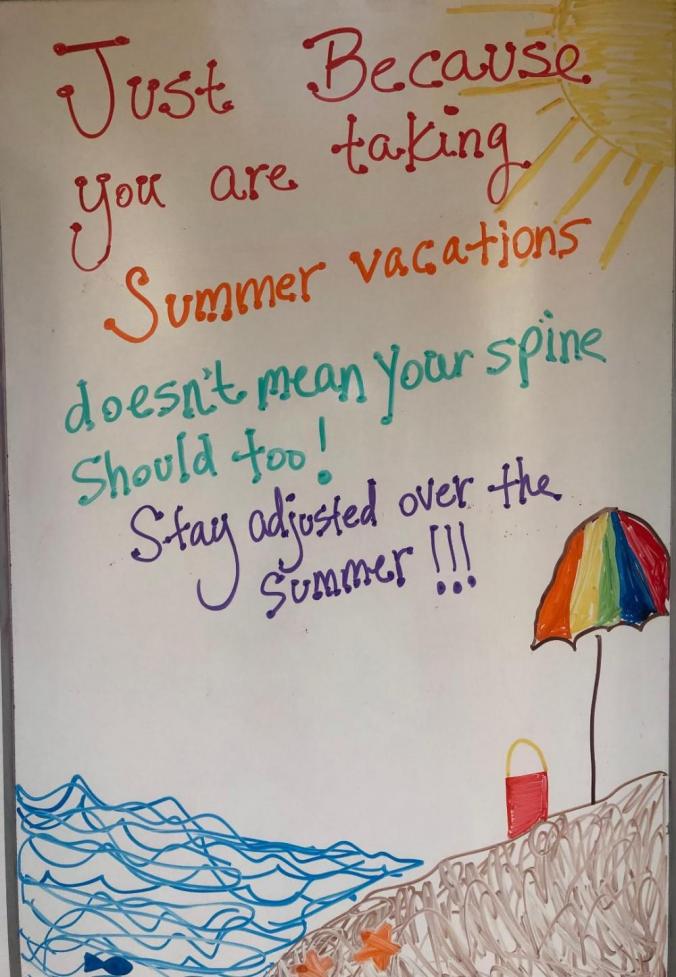 Just Because
you are taking
Summer vacations
doesn't mean your spine
Should too!
Stay adjusted over the
summer!!!